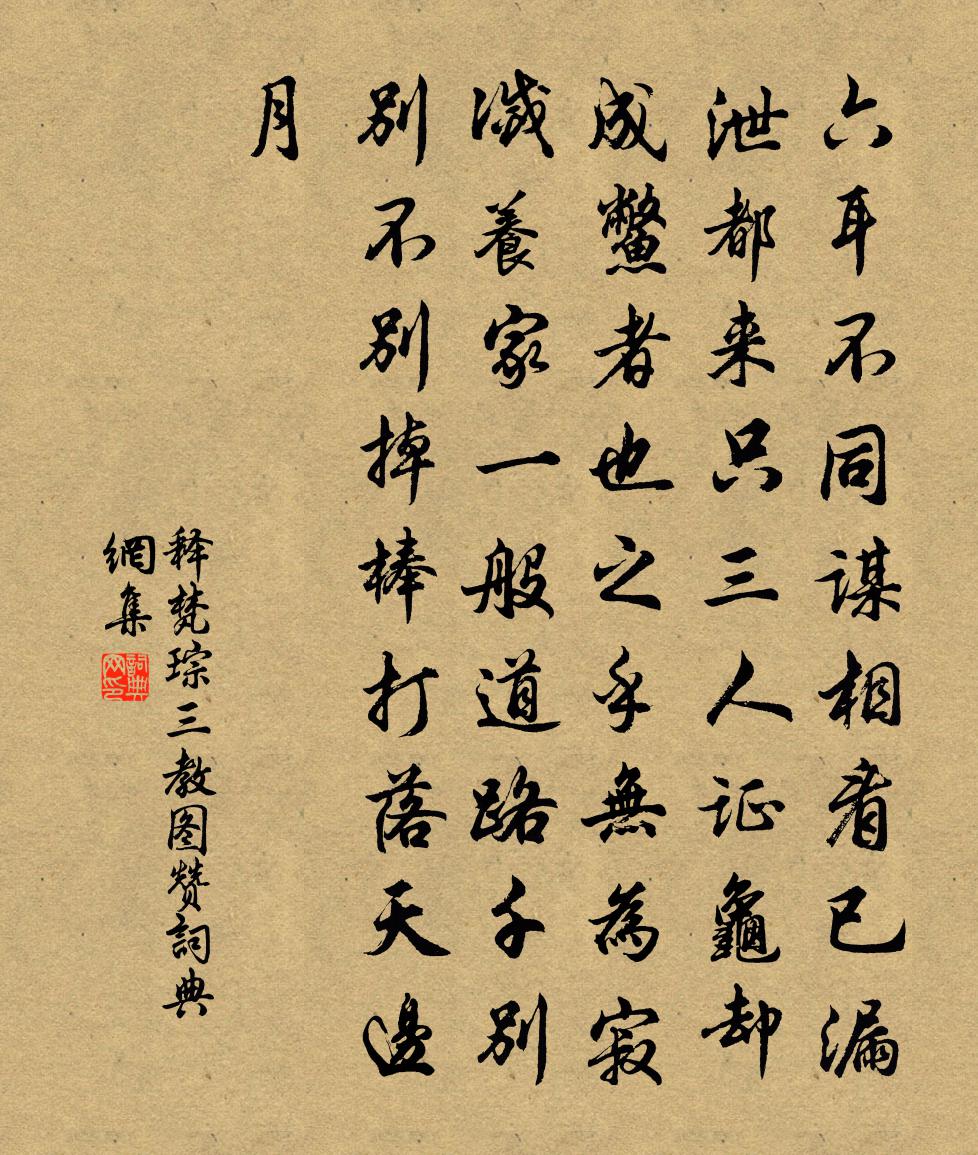 六耳不同谋相看已漏
泄都来只三人证龜却
成鱉者也之乎無為寂
滅養家一般道路千别
别不别掉棒打落天邊
月
释梵琮三教图赞詞典
網集
詞典
网印